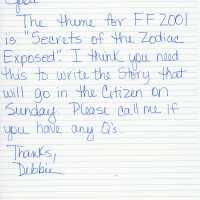 The theme for FF 2001
is "Secrets of the Zodiac
Exposed". I think you need
this to write the story that
will go in the Citizen on
Sunday. Please call me if
you have any Q's.
Thanks,
Debbie